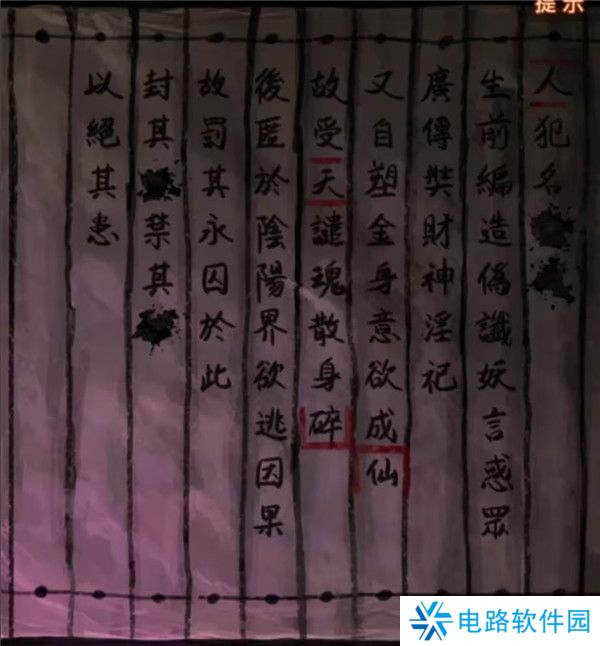 提示
人犯名
生前編造偽讖妖言惑眾
廣傳奘財神淫祀
又自塑金身意欲成仙
故受天譴魂散身碎
後匿於陰陽界欲逃因果
故罰其永囚於此
封其禁其
以絕其患
电路软件园